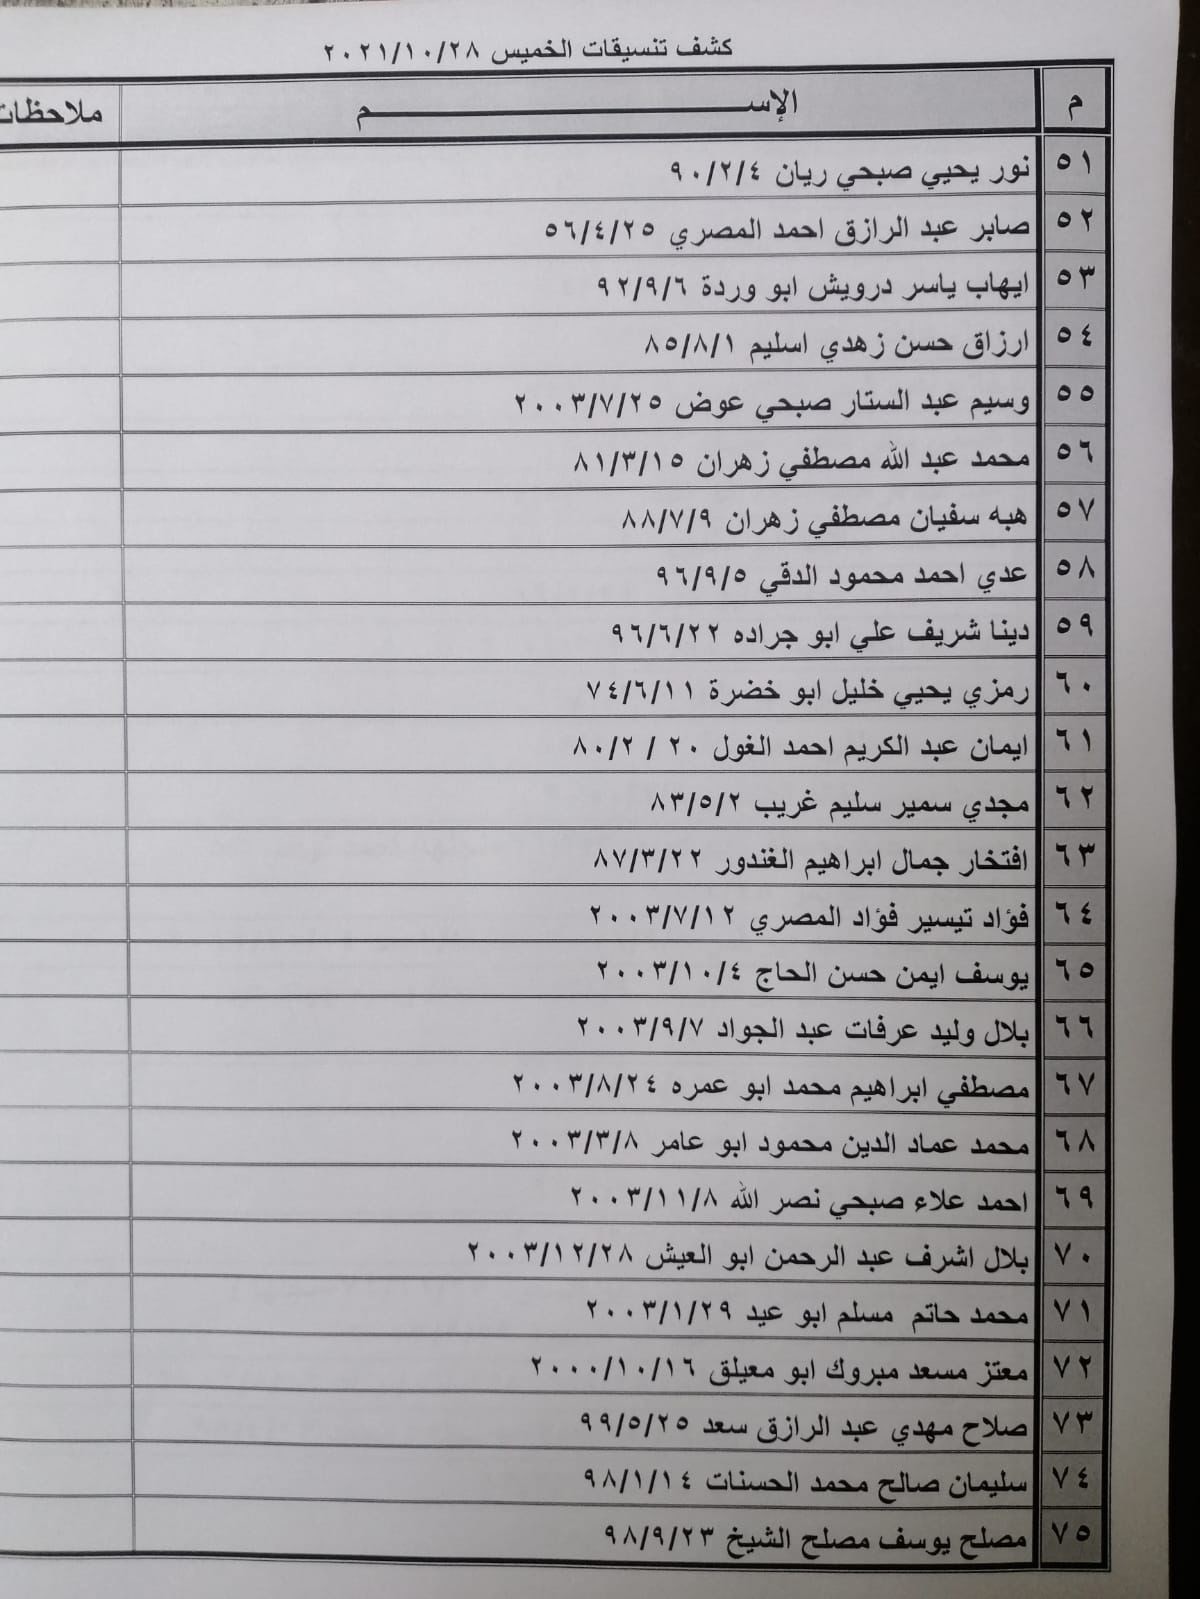 كشف تنسيقات الخميس ٢٠٢١/١٠/٢٨
م الإســـــــــــــــم ملاحظات
٥١ نور يحيي صبحي ريان ٩٠/٢/٤
٥٢ صابر عبد الرازق احمد المصري ٥٦/٤/٢٥
٥٣ ايهاب ياسر درويش ابو وردة ٩٢/٩/٦
٥٤ ارزاق حسن زهدي اسليم ٨٥/٨/١
٥٥ وسيم عبد الستار صبحي عوض ٢٠٠٣/٧/٢٥
٥٦ محمد عبد الله مصطفي زهران ٨١/٣/١٥
٥٧ هبه سفيان مصطفي زهران ٨٨/٧/٩
٥٨ عدي احمد محمود الدقي ٩٦/٩/٥
٥٩ دينا شريف علي ابو جراده ٩٦/٦/٢٢
٦٠ رمزي يحيي خليل ابو خضرة ٧٤/٦/١١
٦١ ايمان عبد الكريم احمد الغول ٨٠/٢ / ٢٠
٦٢ مجدي سمير سليم غريب ٨٣/٥/٢
٦٣ افتخار جمال ابراهيم الغندور ٨٧/٣/٢٢
٦٤ فؤاد تيسير فؤاد المصري ٢٠٠٣/٧/١٢
٦٥ يوسف ايمن حسن الحاج ٢٠٠٣/١٠/٤
٦٦ بلال وليد عرفات عبد الجواد ٢٠٠٣/٩/٧
٦٧ مصطفي ابراهيم محمد ابو عمره ٢٠٠٣/٨/٢٤
٦٨ محمد عماد الدين محمود ابو عامر ٢٠٠٣/٣/٨
٦٩ احمد علاء صبحي نصر الله ٢٠٠٣/١١/٨
٧٠ بلال اشرف عبد الرحمن ابو العيش ٢٠٠٣/١٢/٢٨
٧١ محمد حاتم مسلم ابو عيد ٢٠٠٣/١/٢٩
٧٢ معتز مسعد مبروك ابو معيلق ٢٠٠٠/١٠/١٦
٧٣ صلاح مهدي عبد الرازق سعد ٩٩/٥/٢٥
٧٤ سليمان صالح محمد الحسنات ٩٨/١/١٤
٧٥ مصلح يوسف مصلح الشيخ ٩٨/٩/٢٣